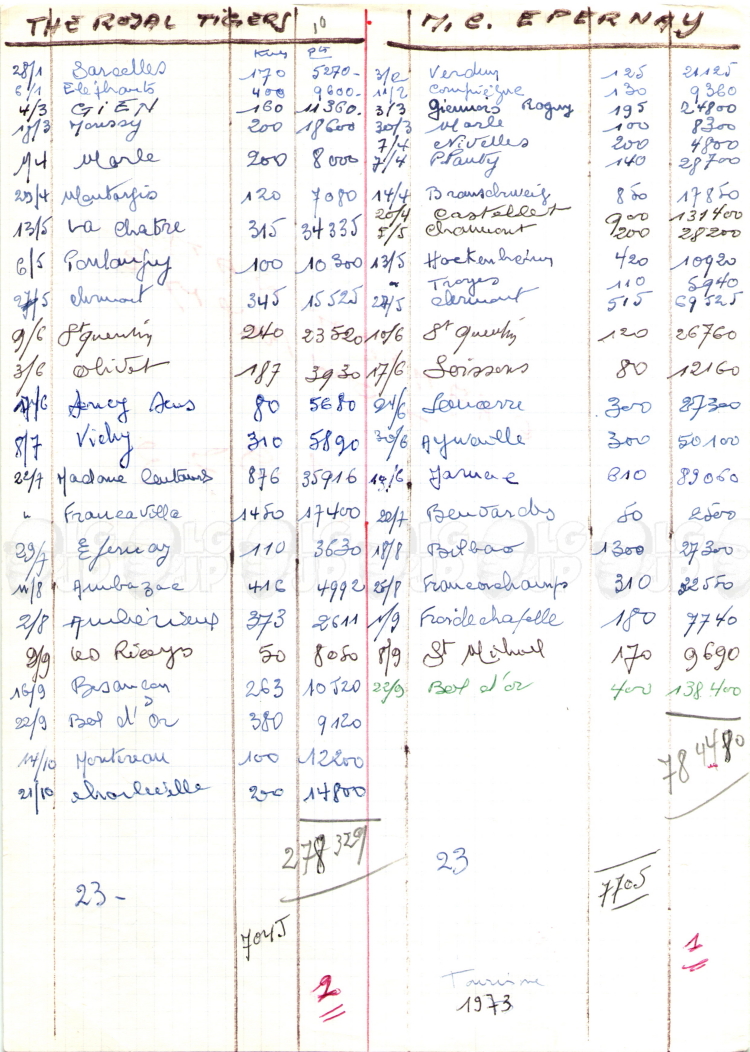 THE ROYAL TIGERS
Kms Pts
28/1 Sarcelles 170 5270-
6/1 Elephants 400 9600-
4/3 GIEN 160 11360.
17/3 Moussy 200 18600
1/4 Marle 200 8000
29/4 Montargis 120 7080
13/5 La Chatre 315 34335
6/5 100 10300
27/5 Clermont 345 15525
9/6 St Quentin 240 23520
3/6 Olivet 187 3930
17/6 Sens 80 5680
8/7 Vichy 310 5890
22/7 Madone Centaures 876 35916
" Francavilla 1450 17400
29/7 Epernay 110 3630
11/8 Ambazac 416 4992
2/8 Ambérieux 373 2611
9/9 Les Riceys 50 8050
16/9 Besançon 263 10520
22/9 Bol d'Or 380 9120
14/10 Montereau 100 12200
21/10 Charleville 200 14800
278329
23-
7045
2
M. C. EPERNAY
3/2 Verdun 125 21125
11/2 Compiègne 130 9360
3/3 Giennois Rogny 195 24800
30/3 Marle 100 8300
7/4 Nivelles 200 4800
7/4 140 28700
14/4 Braunschweig 850 17850
20/4 Castellet 900 131400
5/5 Chaumont 200 28200
13/5 Hockenheim 420 10920
Troyes 110 5940
27/5 Clermont 515 69525
10/6 St Quentin 120 26760
17/6 Soissons 80 12160
24/6 Sancerre 300 87300
30/6 Aywaille 300 50100
Jarnac 610 89060
22/7 Beuvardes 50 2500
18/8 Bilbao 1300 27300
25/8 Francorchamps 310 32550
1/9 Froidechapelle 180 7740
8/9 St Mihiel 170 9690
22/9 Bol d'or 400 138400
784480
23
7705
1
Tourisme
1973